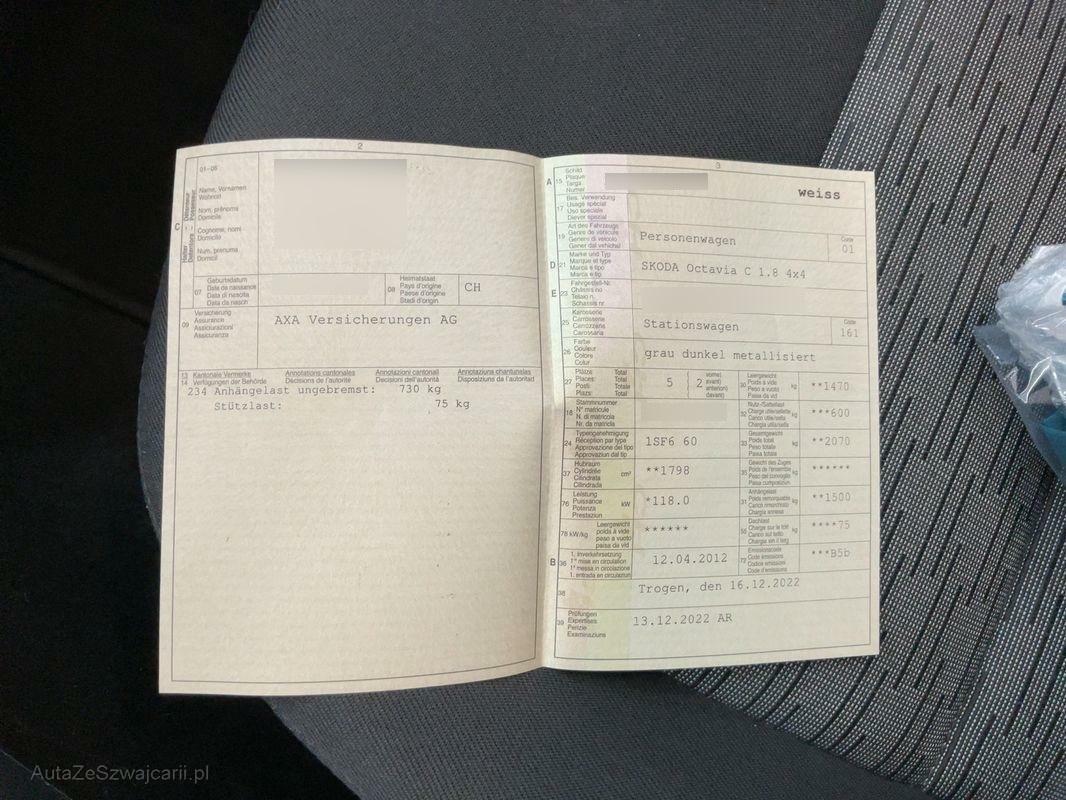 2
01–06
Name, Vornamen
Wohnort
Nom, prénoms
Domicile
Cognome, nomi
Domicilio
Num, prenums
Domicil
C
Halter
Détenteur
Detentore
Possessur
07
Geburtsdatum
Date de naissance
Data di nascita
Data da nasch
08
Heimatstaat
Pays d'origine
Paese d'origine
Stadi d'origin
CH
09
Versicherung
Assurance
Assicurazioni
Assicuranza
AXA Versicherungen AG
13 Kantonale Vermerke Annotations cantonales Annotazioni cantonali Annotaziuns chantunalas
14 Verfügungen der Behörde Décisions de l'autorité Decisioni dell'autorità Disposiziuns da l'autoritad
234 Anhängelast ungebremst: 730 kg
Stützlast: 75 kg
3
A 15
Schild
Plaque
Targa
Numer
weiss
17
Bes. Verwendung
Usage spécial
Uso speciale
Diever spezial
19
Art des Fahrzeugs
Genre de véhicule
Genere di veicolo
Gener dal vehichel
Personenwagen
Code
01
D 21
Marke und Typ
Marque et type
Marca e tipo
Marca e tip
SKODA Octavia C 1.8 4x4
E 23
Fahrgestell-Nr.
Châssis no
Telaio n.
Schassis nr.
25
Karosserie
Carrosserie
Carrozzeria
Carossaria
Stationswagen
Code
161
26
Farbe
Couleur
Colore
Colur
grau dunkel metallisiert
27
Plätze Total
Places: Total
Posti: Totale
Plazs: Total
5
vorne)
avant)
anteriori)
davant)
2
30
Leergewicht
Poids à vide
Peso a vuoto
Paisa da vid
kg
**1470
18
Stammnummer
N° matricule
N. di matricola
Nr. da matricla
32
Nutz-/Sattellast
Charge utile/sellette
Carico utile/sella
Chargia utila/sella
kg
***600
24
Typengenehmigung
Réception par type
Approvazione del tipo
Approvaziun dal tip
1SF6 60
33
Gesamtgewicht
Poids total
Peso totale
Paisa totala
kg
**2070
37
Hubraum
Cylindrée
Cilindrata
Cilindrada
cm³
**1798
35
Gewicht des Zuges
Poids de l'ensemble
Peso del convoglio
Paisa cumposiziun
kg
******
76
Leistung
Puissance
Potenza
Prestaziun
kW
*118.0
31
Anhängelast
Poids remorquable
Carico rimorchiato
Chargia annexa
kg
**1500
78 kW/kg
Leergewicht
poids à vide
peso a vuoto
paisa da vid
******
55
Dachlast
Charge sur le toit
Carico sul tetto
Chargia sin il tetg
kg
****75
B 36
1. Inverkehrsetzung
1re mise en circulation
1a messa in circolazione
1. entrada en circulaziun
12.04.2012
72
Emissionscode
Code émissions
Codice emissioni
Code d'emissiuns
***B5b
38
Trogen, den 16.12.2022
39
Prüfungen
Expertises
Perizie
Examinaziuns
13.12.2022 AR
AutaZeSzwajcarii.pl